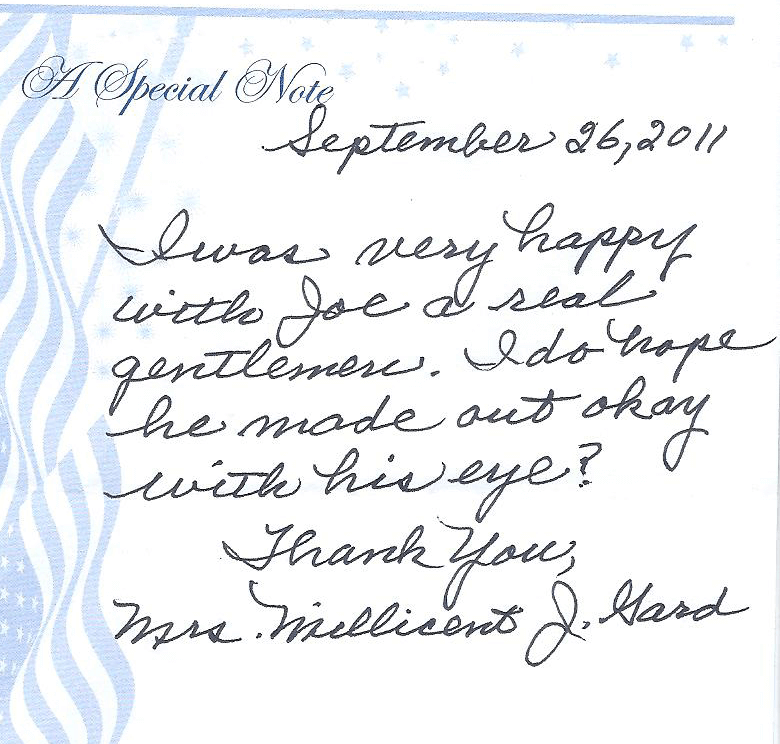 A Special Note
September 26, 2011
I was very happy
with Joe a real
gentlemen. I do hope
he made out okay
with his eye?
Thank You,
Mrs. Millicent J. Gard